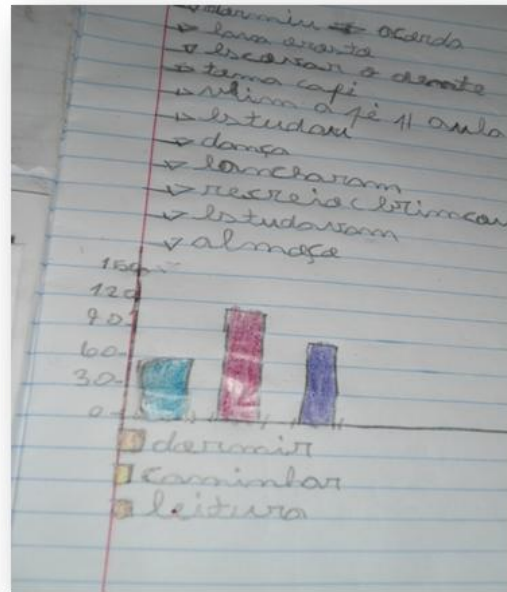 dormiu acorda
lava orosto
escovar o dente
toma café
vim a pé 11 aula
Estudou
dança
lancharam
recreio (brincou
Estudavam
almoça
150
120
90
60
30
0
dormir
caminhar
leitura